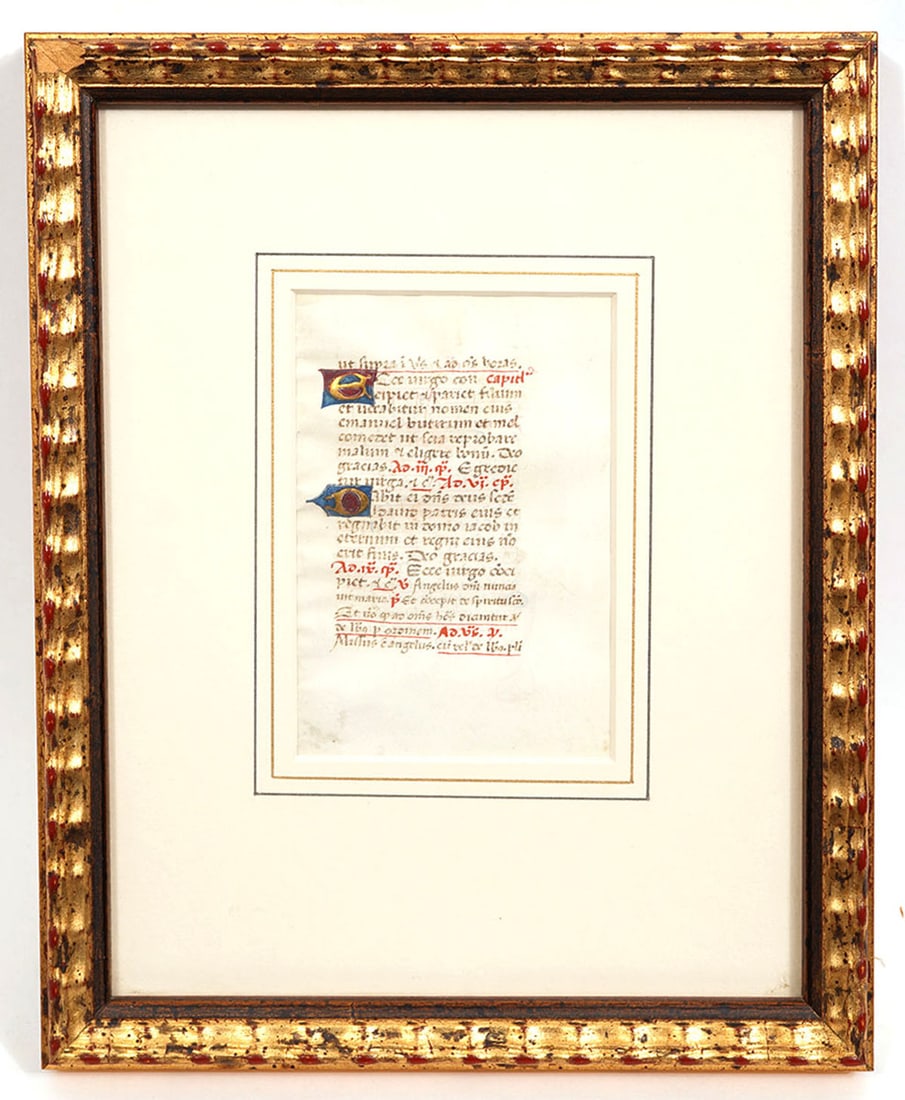 ut supra i vs̄ & ad oēs horas.
Ecce uirgo con capitlʼ
cipiet & pariet filium
et uocabitur nomen eius
emanuel butirum et mel
comedet ut scia reprobare
malum & eligere bonū. Deo
gracias. Ad. iij. cp̄. Egredie
tur uirga. & c̄. Ad. vj. cp̄.
Dabit ei dn̄s deus sede
dauid patris eius et
regnabit in domo iacob in
eternum et regni eius nō
erit finis. Deo gracias.
Ad. ix. cp̄. Ecce uirgo cōci
piet. & c̄ v Angelus dn̄i nuncia
uit marie. p̄ Et cōcepit de spiritu sc̄o.
dicuntur
de p ordinem. Ad. vs̄. a.
Missus ē angelus. de